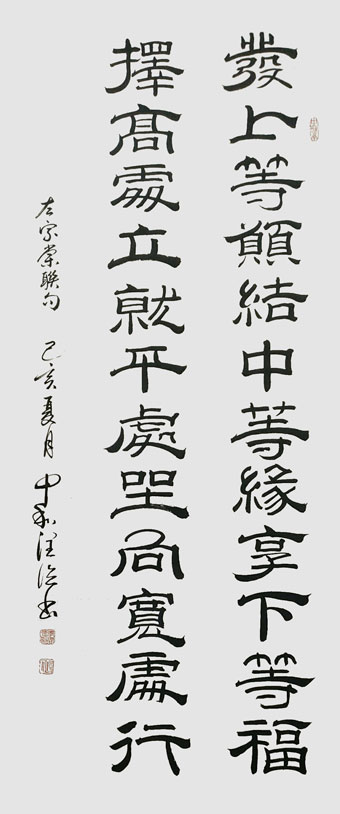 發上等願結中等緣享下等福
擇高處立就平處坐向寬處行
左宗棠聯句 己亥夏月 中和